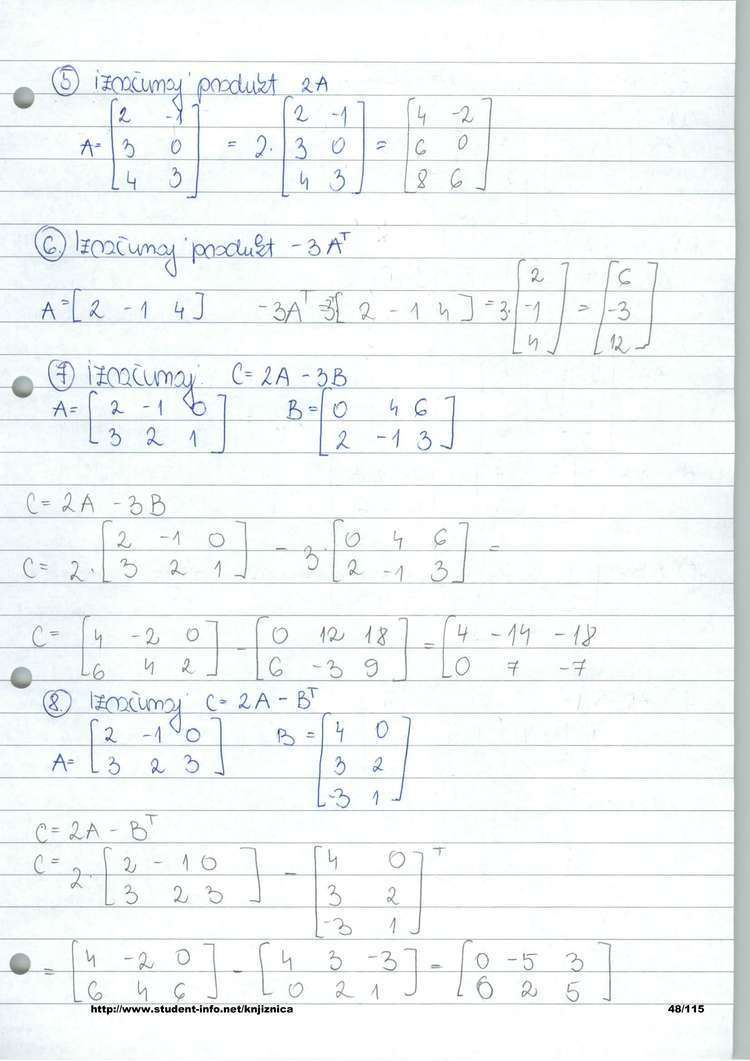 5 izračunaj produkt 2A
A= [2 -1; 3 0; 4 3] = 2· [2 -1; 3 0; 4 3] = [4 -2; 6 0; 8 6]
6. Izračunaj produkt -3A^T
A=[2 -1 4] -3A^T = 3[2 -1 4] = 3· [2; -1; 4] = [6; -3; 12]
7 izračunaj C=2A-3B
A= [2 -1 0; 3 2 1] B= [0 4 6; 2 -1 3]
C= 2A - 3B
C= 2· [2 -1 0; 3 2 1] - 3· [0 4 6; 2 -1 3] =
C= [4 -2 0; 6 4 2] - [0 12 18; 6 -3 9] = [4 -14 -18; 0 7 -7
8. Izračunaj C=2A-B^T
A= [2 -1 0; 3 2 3] B= [4 0; 3 2; -3 1]
C=2A-B^T
C= 2· [2 -1 0; 3 2 3] - [4 0; 3 2; -3 1]^T
= [4 -2 0; 6 4 6] - [4 3 -3; 0 2 1] = [0 -5 3; 6 2 5]
http://www.student-info.net/knjiznica 48/115